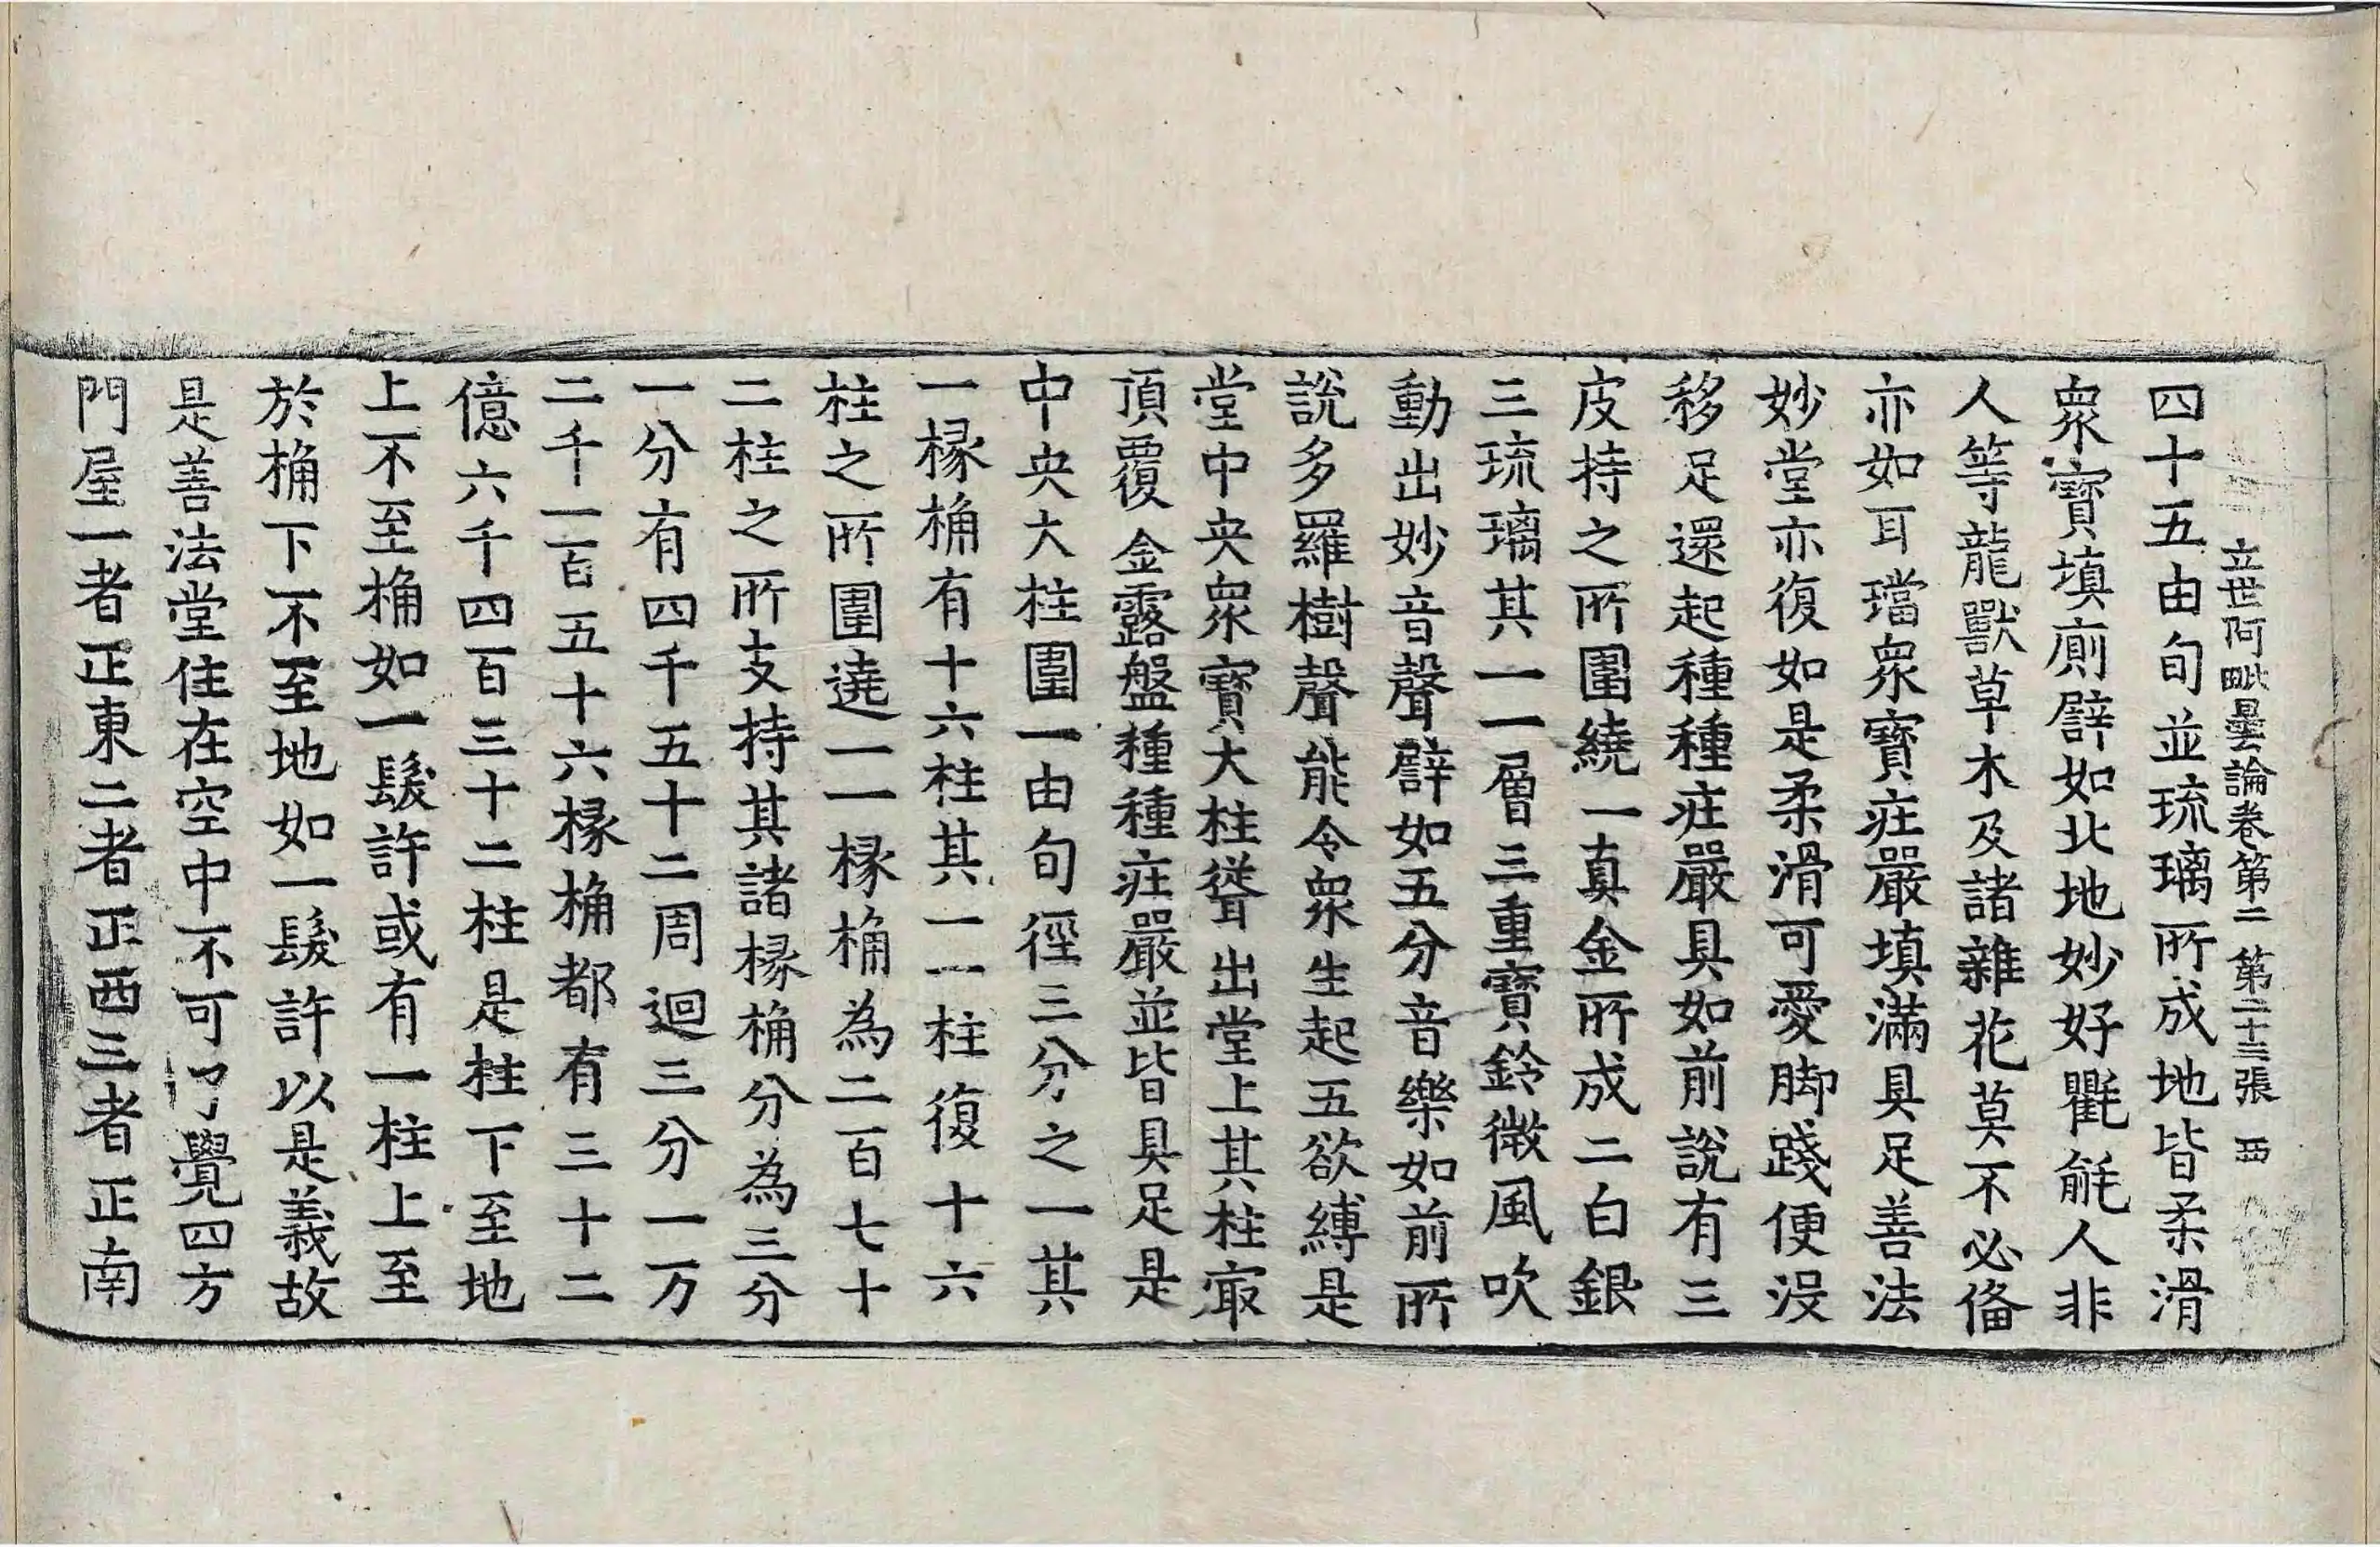 立世阿毗曇論卷第二 第二十三張 西
四十五由旬並琉璃所成地皆柔滑
衆寶填廁譬如北地妙好氍毹人非
人等龍獸草木及諸雜花莫不必俻
亦如耳璫衆寶莊嚴填滿具足善法
妙堂亦復如是柔滑可愛脚踐便没
移足還起種種莊嚴具如前說有三
皮持之所圍繞一真金所成二白銀
三琉璃其一一層三重寶鈴微風吹
動出妙音聲譬如五分音樂如前所
說多羅樹聲能令衆生起五欲縛是
堂中央衆寶大柱聳出堂上其柱冣
頂覆金露盤種種莊嚴並皆具足是
中央大柱圍一由旬徑三分之一其
一椽桷有十六柱其一一柱復十六
柱之所圍遶一一椽桷為二百七十
二柱之所支持其諸椽桷分為三分
一分有四千五十二周迴三分一万
二千一百五十六椽桷都有三十二
億六千四百三十二柱是柱下至地
上不至桷如一髮許或有一柱上至
於桷下不至地如一髮許以是義故
是善法堂住在空中不可了覺四方
門屋一者正東二者正西三者正南